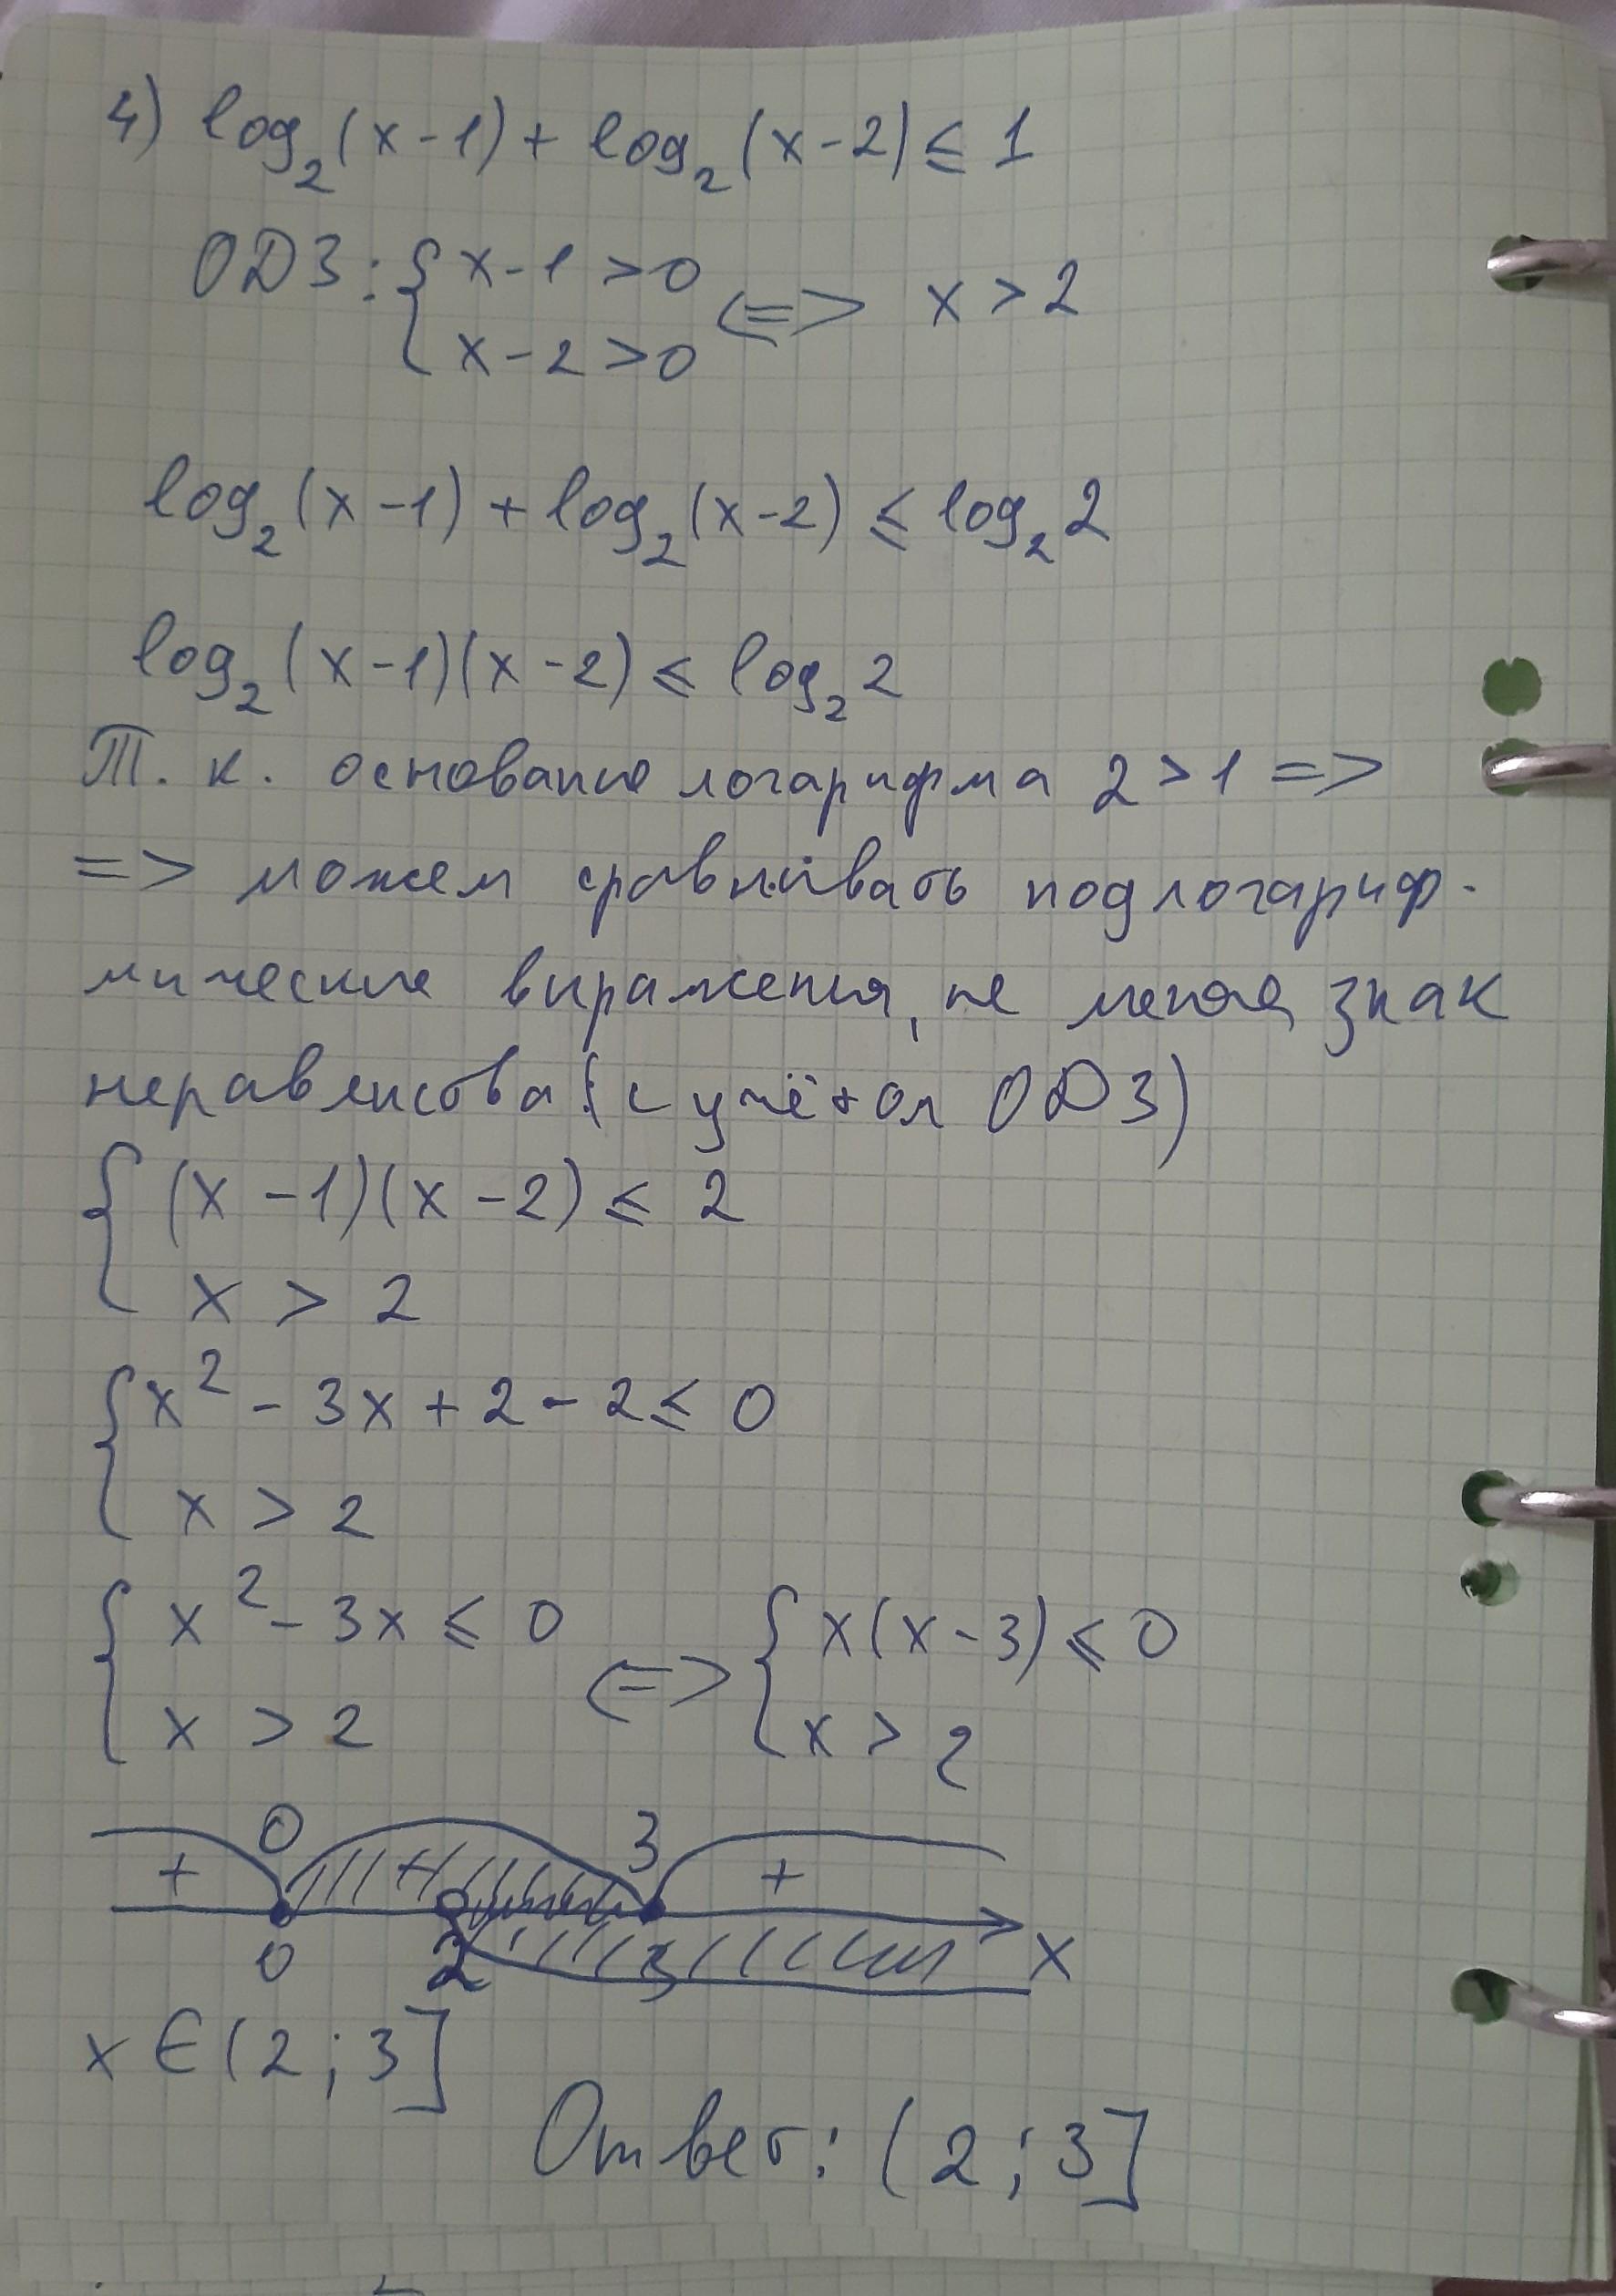 4) log₂(x-1) + log₂(x-2) ≤ 1
ОДЗ: { x-1 > 0 <=> x > 2
x-2 > 0
log₂(x-1) + log₂(x-2) ≤ log₂2
log₂(x-1)(x-2) ≤ log₂2
Т. к. основание логарифма 2 > 1 =>
=> можем сравнивать подлогариф-
мические выражения, не меняя знак
неравенства (с учётом ОДЗ)
{ (x-1)(x-2) ≤ 2
x > 2
{ x² - 3x + 2 - 2 ≤ 0
x > 2
{ x² - 3x ≤ 0 <=> { x(x-3) ≤ 0
x > 2 x > 2
0 3
+ +
0 2 3 x
x ∈ (2; 3]
Ответ: (2; 3]